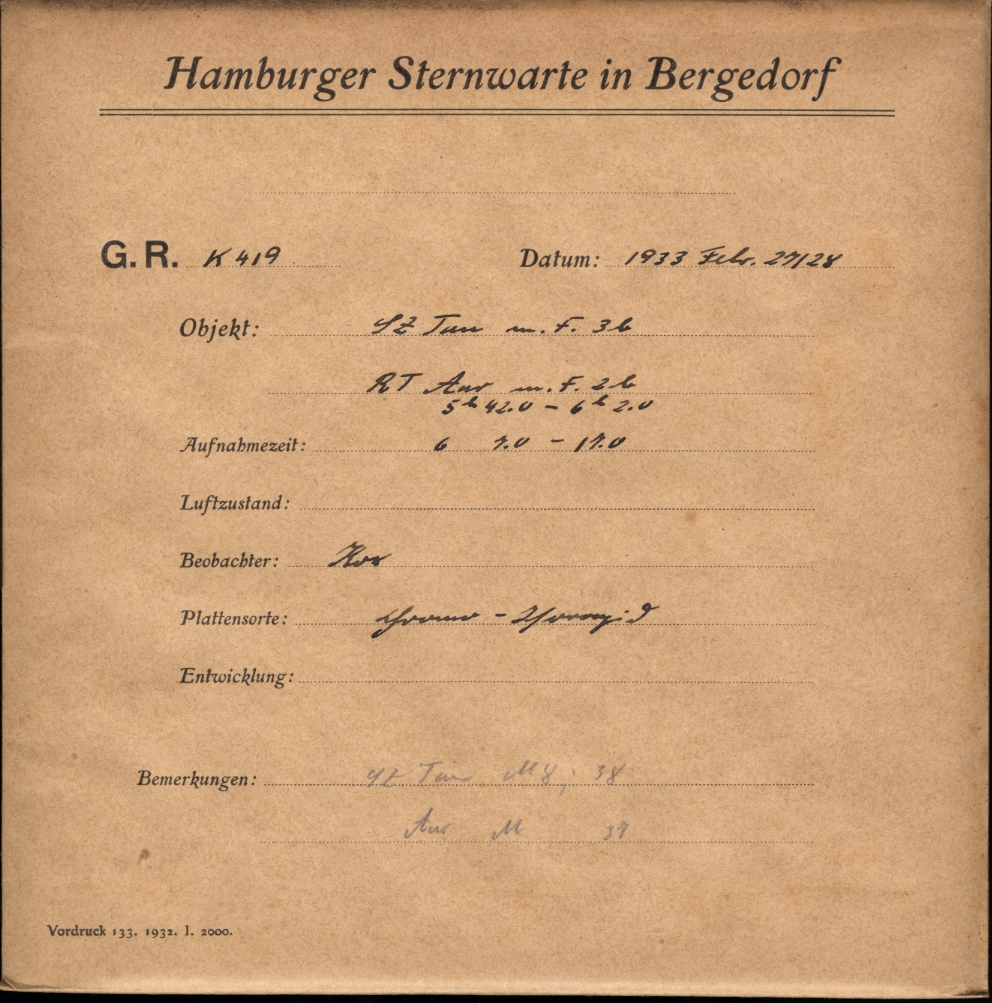 Hamburger Sternwarte in Bergedorf
G. R. K 419 Datum: 1933 Febr. 27/28
Objekt: SZ Tau m. F. 3 b
RT Aur m. F. 2 b
5h 42.0 – 6h 2.0
Aufnahmezeit: 6 7.0 – 17.0
Luftzustand:
Beobachter:
Plattensorte:
Entwicklung:
Bemerkungen: SZ Tau M 8; 38
Aur M 37
Vordruck 133. 1932. I. 2000.